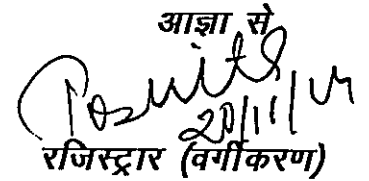 आज्ञा से
20/11/14
रजिस्ट्रार (वर्गीकरण)